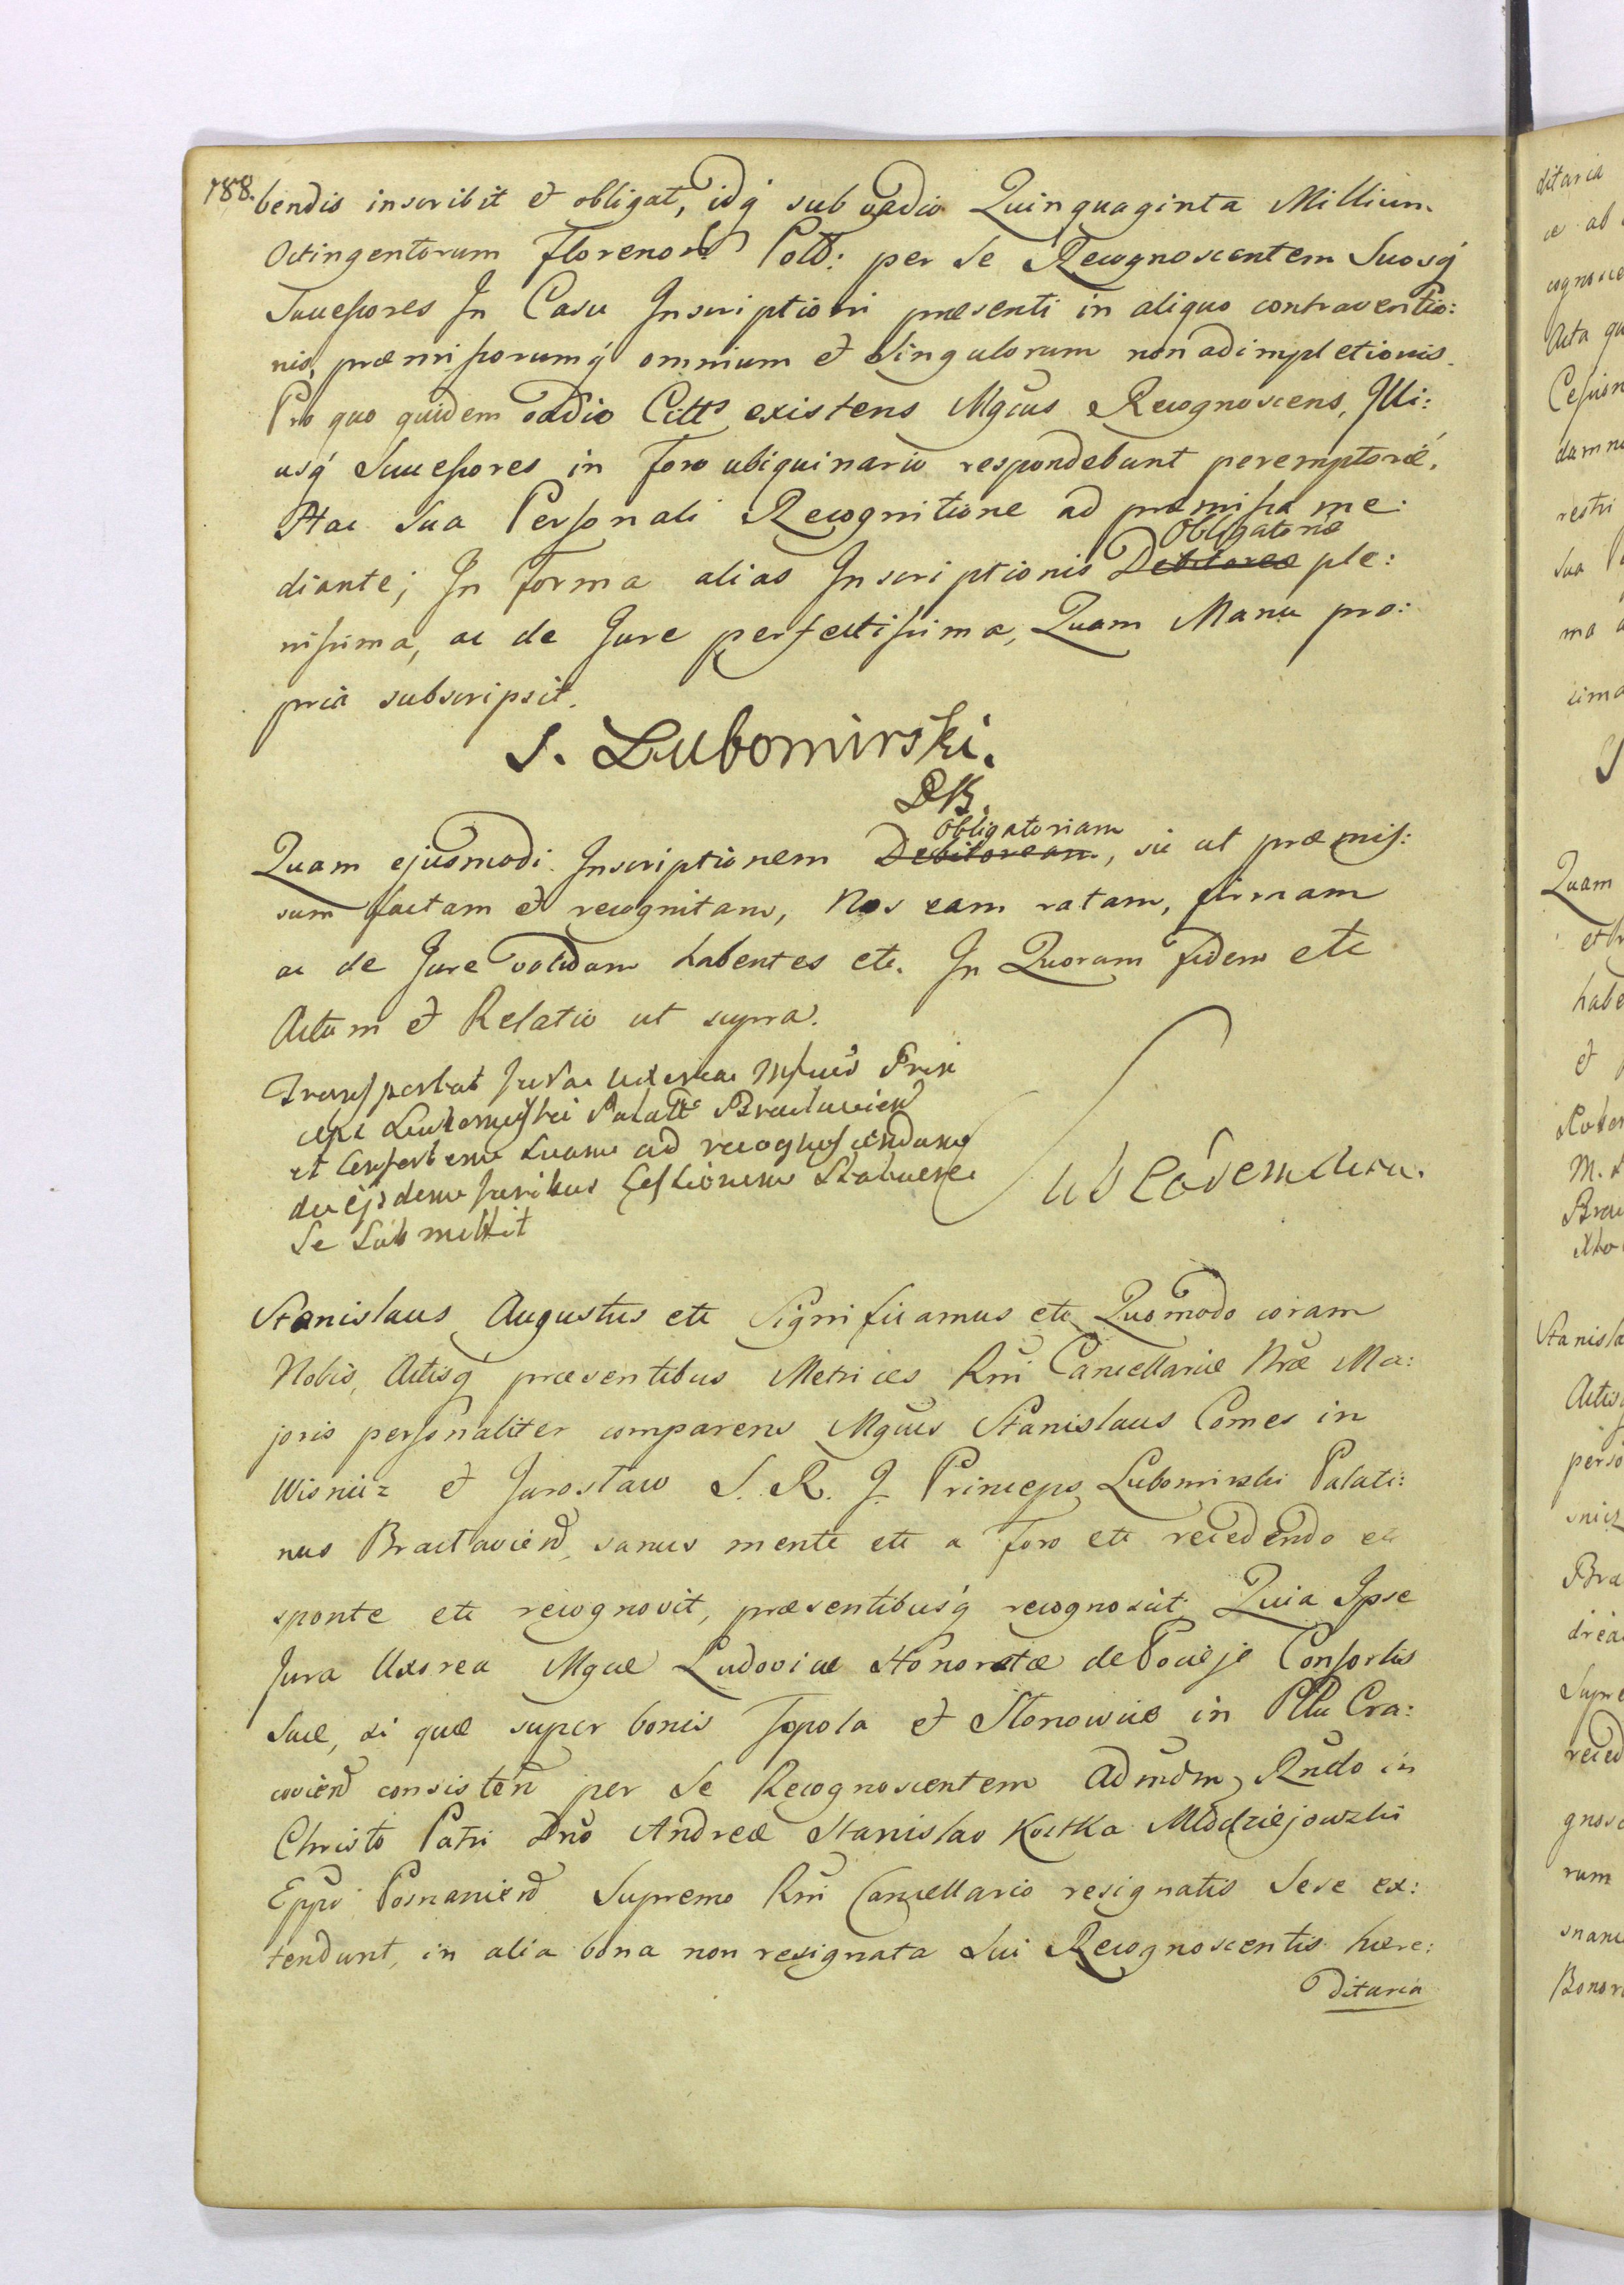 188.
bendis inscribit et obligat, idq́ sub vadio Quinquaginta Millium
Octingentorum Florenor̃ Poll̃: per Se Recognoscentem Suosq́
Successores In Casu Inscriptioni præsenti in aliquo contraventio:
nis, præmissorumq́ omnium et Singulorum non adimpletionis.
Pro quo quidem vadio Citt̃s existens Mgcus Recognoscens, Illi:
usq́ Successores in Foro ubiquinario respondebunt peremptorié.
Hac Sua Personali Recognitione ad præmissa me:
diante; In Forma alias Inscriptionis Debitoreæ Obligatoriæ ple:
nissima, ac de Jure perfectissima, Quam Manu pro:
pria subscripsit.
S. Lubomirski.
Quam ejusmodi Inscriptionem Debitoream Obligatoriam, sic ut præmis:
sum factam et recognitam, Nos eam ratam, firmam
ac de Jure validam habentes etc. In Quorum fidem etc
Actum et Relatio ut supra.
Transportat Jura Uxorea Mgcus Prin
ceps Lubomirski Palatt̃s Braclavien̄
et Consortem Suam ad recognoscendam
de ejsdem Juribus Cessionem Statuere
Se Submittit
Ut Eadem Dira.
Stanislaus Augustus etc Significamus etc Quomodo coram
Nobis, Actisq́ præsentibus Metrices Rñi Cancellariæ Nr̃æ Ma:
joris personaliter comparens Mgcus Stanislaus Comes in
Wisnicz et Jarosław S. R. J. Princeps Lubomirski Palati:
nus Bracłavień, sanus mente etc a Foro etc recedendo etc
sponte etc recognovit, præsentibusq́ recognoscit; Quia Ipse
Jura Uxorea Mgcæ Ludovicæ Honoratæ de Pocieje Consortis
Suæ, si quæ super bonis Topola et Stonowice in Pttu Cra:
covień consisteñ per Se Recognoscentem Admdm Rñdo in
Christo Patri Dño Andreæ Stanislao Kostka Młodziejowski
Eppo Posnanień Supremo Rñi Cancellario resignatis Sese ex:
tendunt, in alia bona non resignata Sui Recognoscentis hære:
ditaria